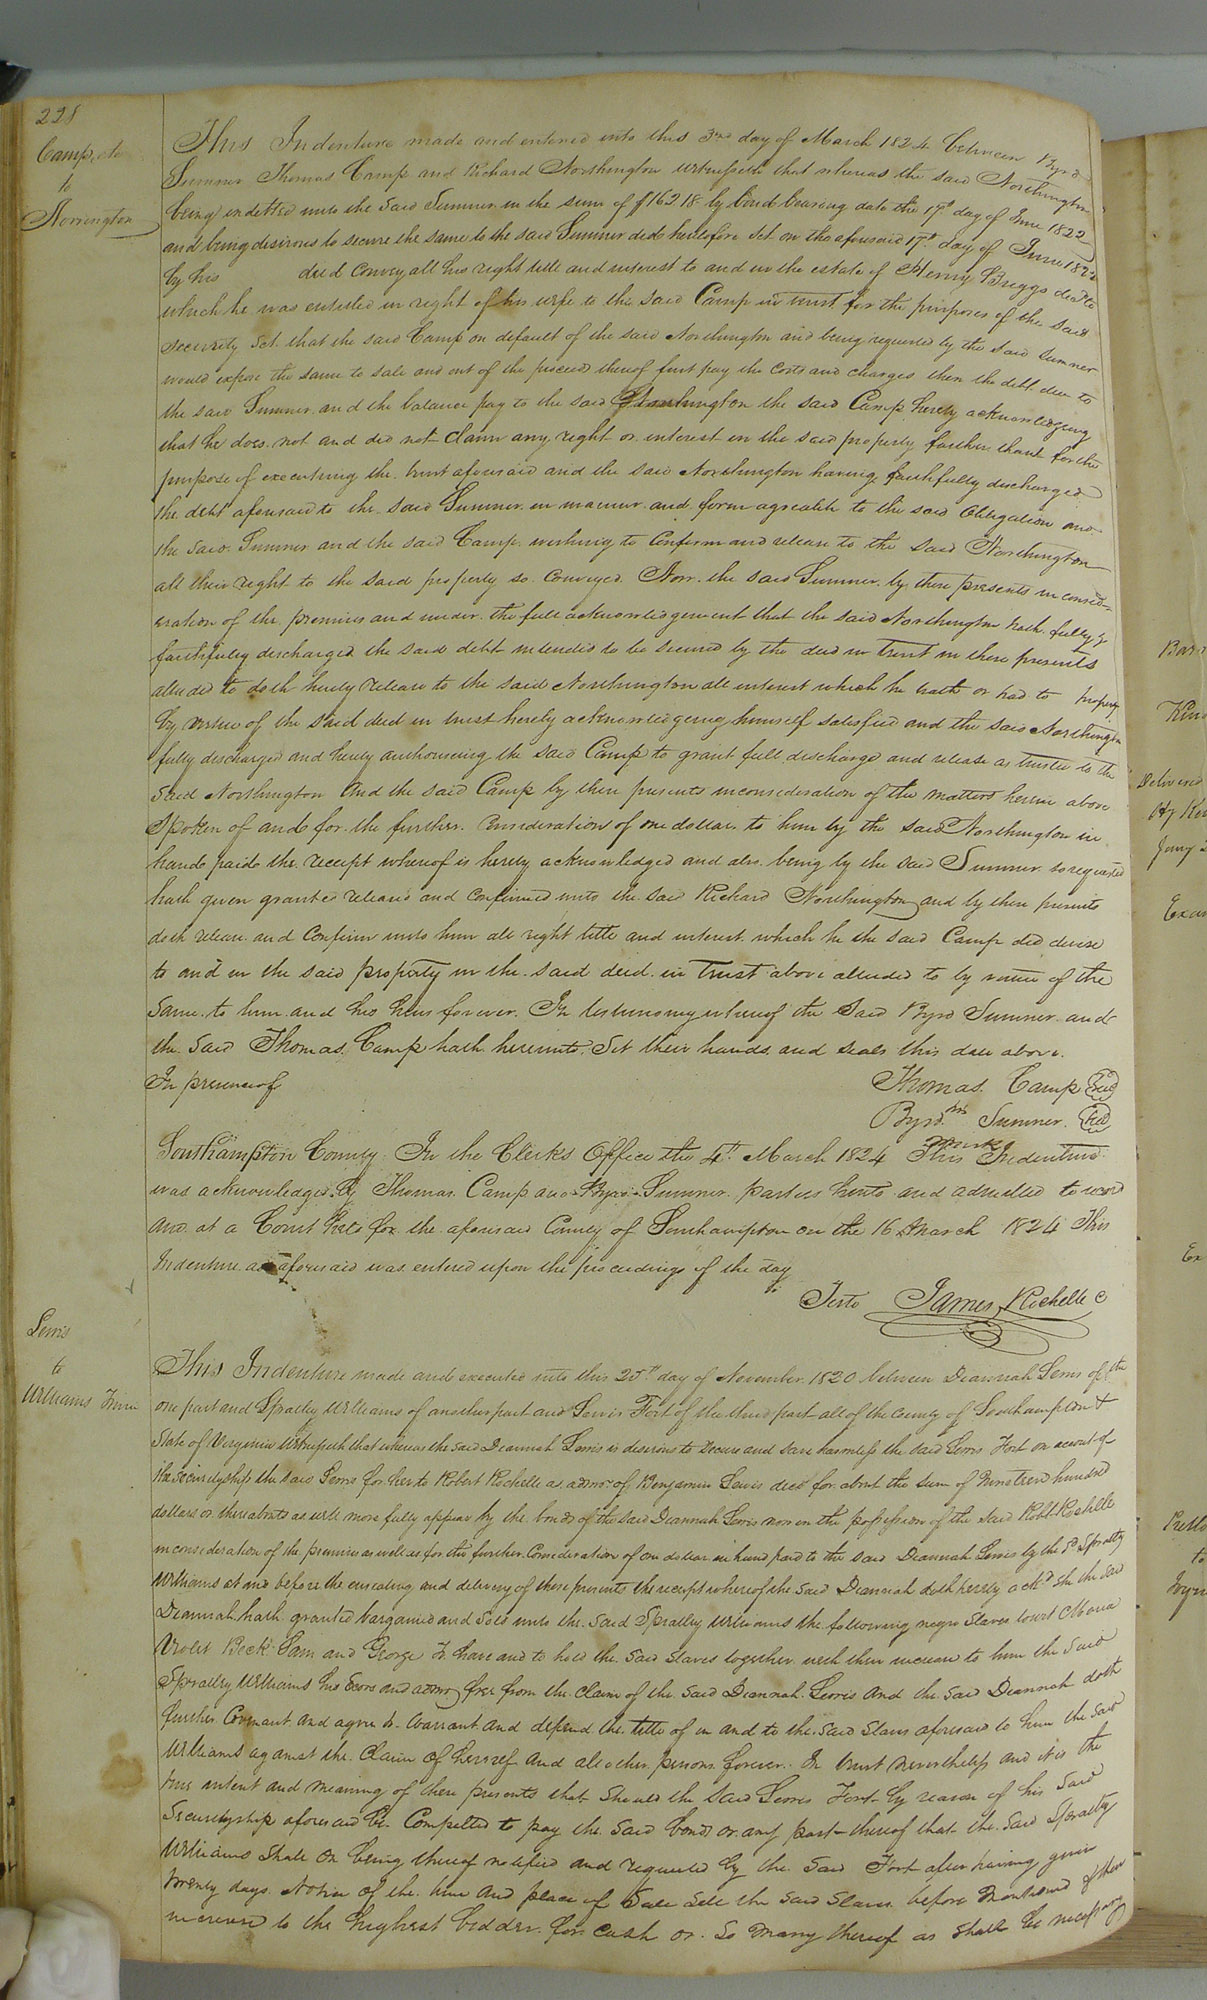 228
Camp, &c
to
Norrington
This Indenture made and entered into this 3rd day of March 1824 between Byrd
Sumner Thomas Camp and Richard Northington witnesseth that whereas the said Northington
being indetted unto the said Sumner in the sum of $162.18 by bond bearing date the 17th day of June 1822
and being desirous to secure the same to the said Sumner did heretofore Set. on the aforesaid 17th day of June 1822
by his deed Convey all his right title and interest to and in the estate of Henry Briggs decd to
which he was entitled in right of his wife to the said Camp in trust for the purposes of the said
security Set. that the said Camp on default of the said Northington and being requested by the said Sumner
would expose the same to sale and out of the proceed thereof first pay the costs and charges then the debt due to
the said Sumner and the balance pay to the said Northington the said Camp hereby acknowledging
that he does not and did not Claim any right or interest in the said property further than for the
purpose of executing the trust aforesaid and the said Northington having faithfully discharged
the debt aforesaid to the said Sumner in manner and form agreable to the said Obligation and
the said Sumner and the said Camp wishing to Confirm and release to the said Northington
all their right to the said property so Conveyed. Now the said Sumner by these presents in consid-
eration of the premises and under the full acknowledgement that the said Northington hath fully &
faithfully discharged the said debt intended to be secured by the deed in Trust in these presents
alluded to doth hereby release to the said Northington all interest which he hath or had to property
by virtue of the said deed in trust hereby acknowledgeing himself satisfied and the said Northington
fully discharged and hereby authorising the said Camp to grant full discharge and release as trustee to the
said Northington And the said Camp by these presents inconsideration of the matters herein above
Spoken of and for the further Consideration of one dollar to him by the said Northington in
hand paid the receipt whereof is hereby acknowledged and also being by the said Sumner so requested
hath given granted released and confirmed unto the said Richard Northington and by these presents
doth release and Confirm unto him all right title and interest which he the said Camp did derive
to and in the said property in the said deed in Trust above alluded to by virtue of the
Same to him and his heirs forever. In testimony whereof the Said Byrd Sumner and
the Said Thomas Camp hath hereunto Set their hands and seals this date above.
In presence of
Thomas Camp Seal
Byrd his Sumner Seal
mark
Southampton County In the Clerks Office the 4th March 1824 This Indenture
was acknowledged By Thomas Camp and Byrd Sumner parties hereto and admitted to record
And at a Court held for the aforesaid County of Southampton on the 16 March 1824 This
Indenture as aforesaid was entered upon the proceedings of the day
Teste James Rochelle C
Lewis
to
Williams Trustee
This Indenture made and executed into this 25th day of November 1820 between Deannah Lewis of the
one part and Spratley Williams of another part and Lewis Fort of the third part all of the County of Southampton &
State of Virginia Witnesseth that whereas the said Deannah Lewis is desirous to secure and save harmless the said Lewis Fort on account of
the Securityship the said Lewis for her to Robert Rochelle as admor. of Benjamin Lewis decd for about the sum of Nineteen hundred
dollars or thereabouts as will more fully appear by the bonds of the said Deannah Lewis now in the possession of the said Robt Rochelle
in consideration of the premises as well as for the further Consideration of one dollar in hand paid to the said Deannah Lewis by the sd Spratley
Williams at and before the ensealing and delivery of these presents the receipt whereof the said Deannah doth hereby ackd she the said
Deannah hath granted bargained and Sold unto the Said Spratley Williams the following negro Slaves towit Maria
Violet Beck Sam and George To have and to hold the Said Slaves together with their increase to him the Said
Spratley Williams his Exors and admors free from the Claim of the Said Deannah Lewis And the Said Deannah doth
further Covenant and agree to Warrant And defend the title of in and to the Said Slaves aforesaid to him the Said
Williams against the Claim of herself And all other persons forever. In trust nevertheless and it is the
true intent and meaning of these presents that Should the Said Lewis Fort by reason of his Said
Securityship aforesaid be Compelled to pay the Said bonds or any part thereof that the Said Spratley
Williams Shall on being thereof notified and requested by the Said Fort after having given
twenty days Notice of the time And place of Sale Sell the Said Slaves before Mentioned & their
increase to the highest bidder for Cash or So many thereof as Shall be necessary
Delivered
to